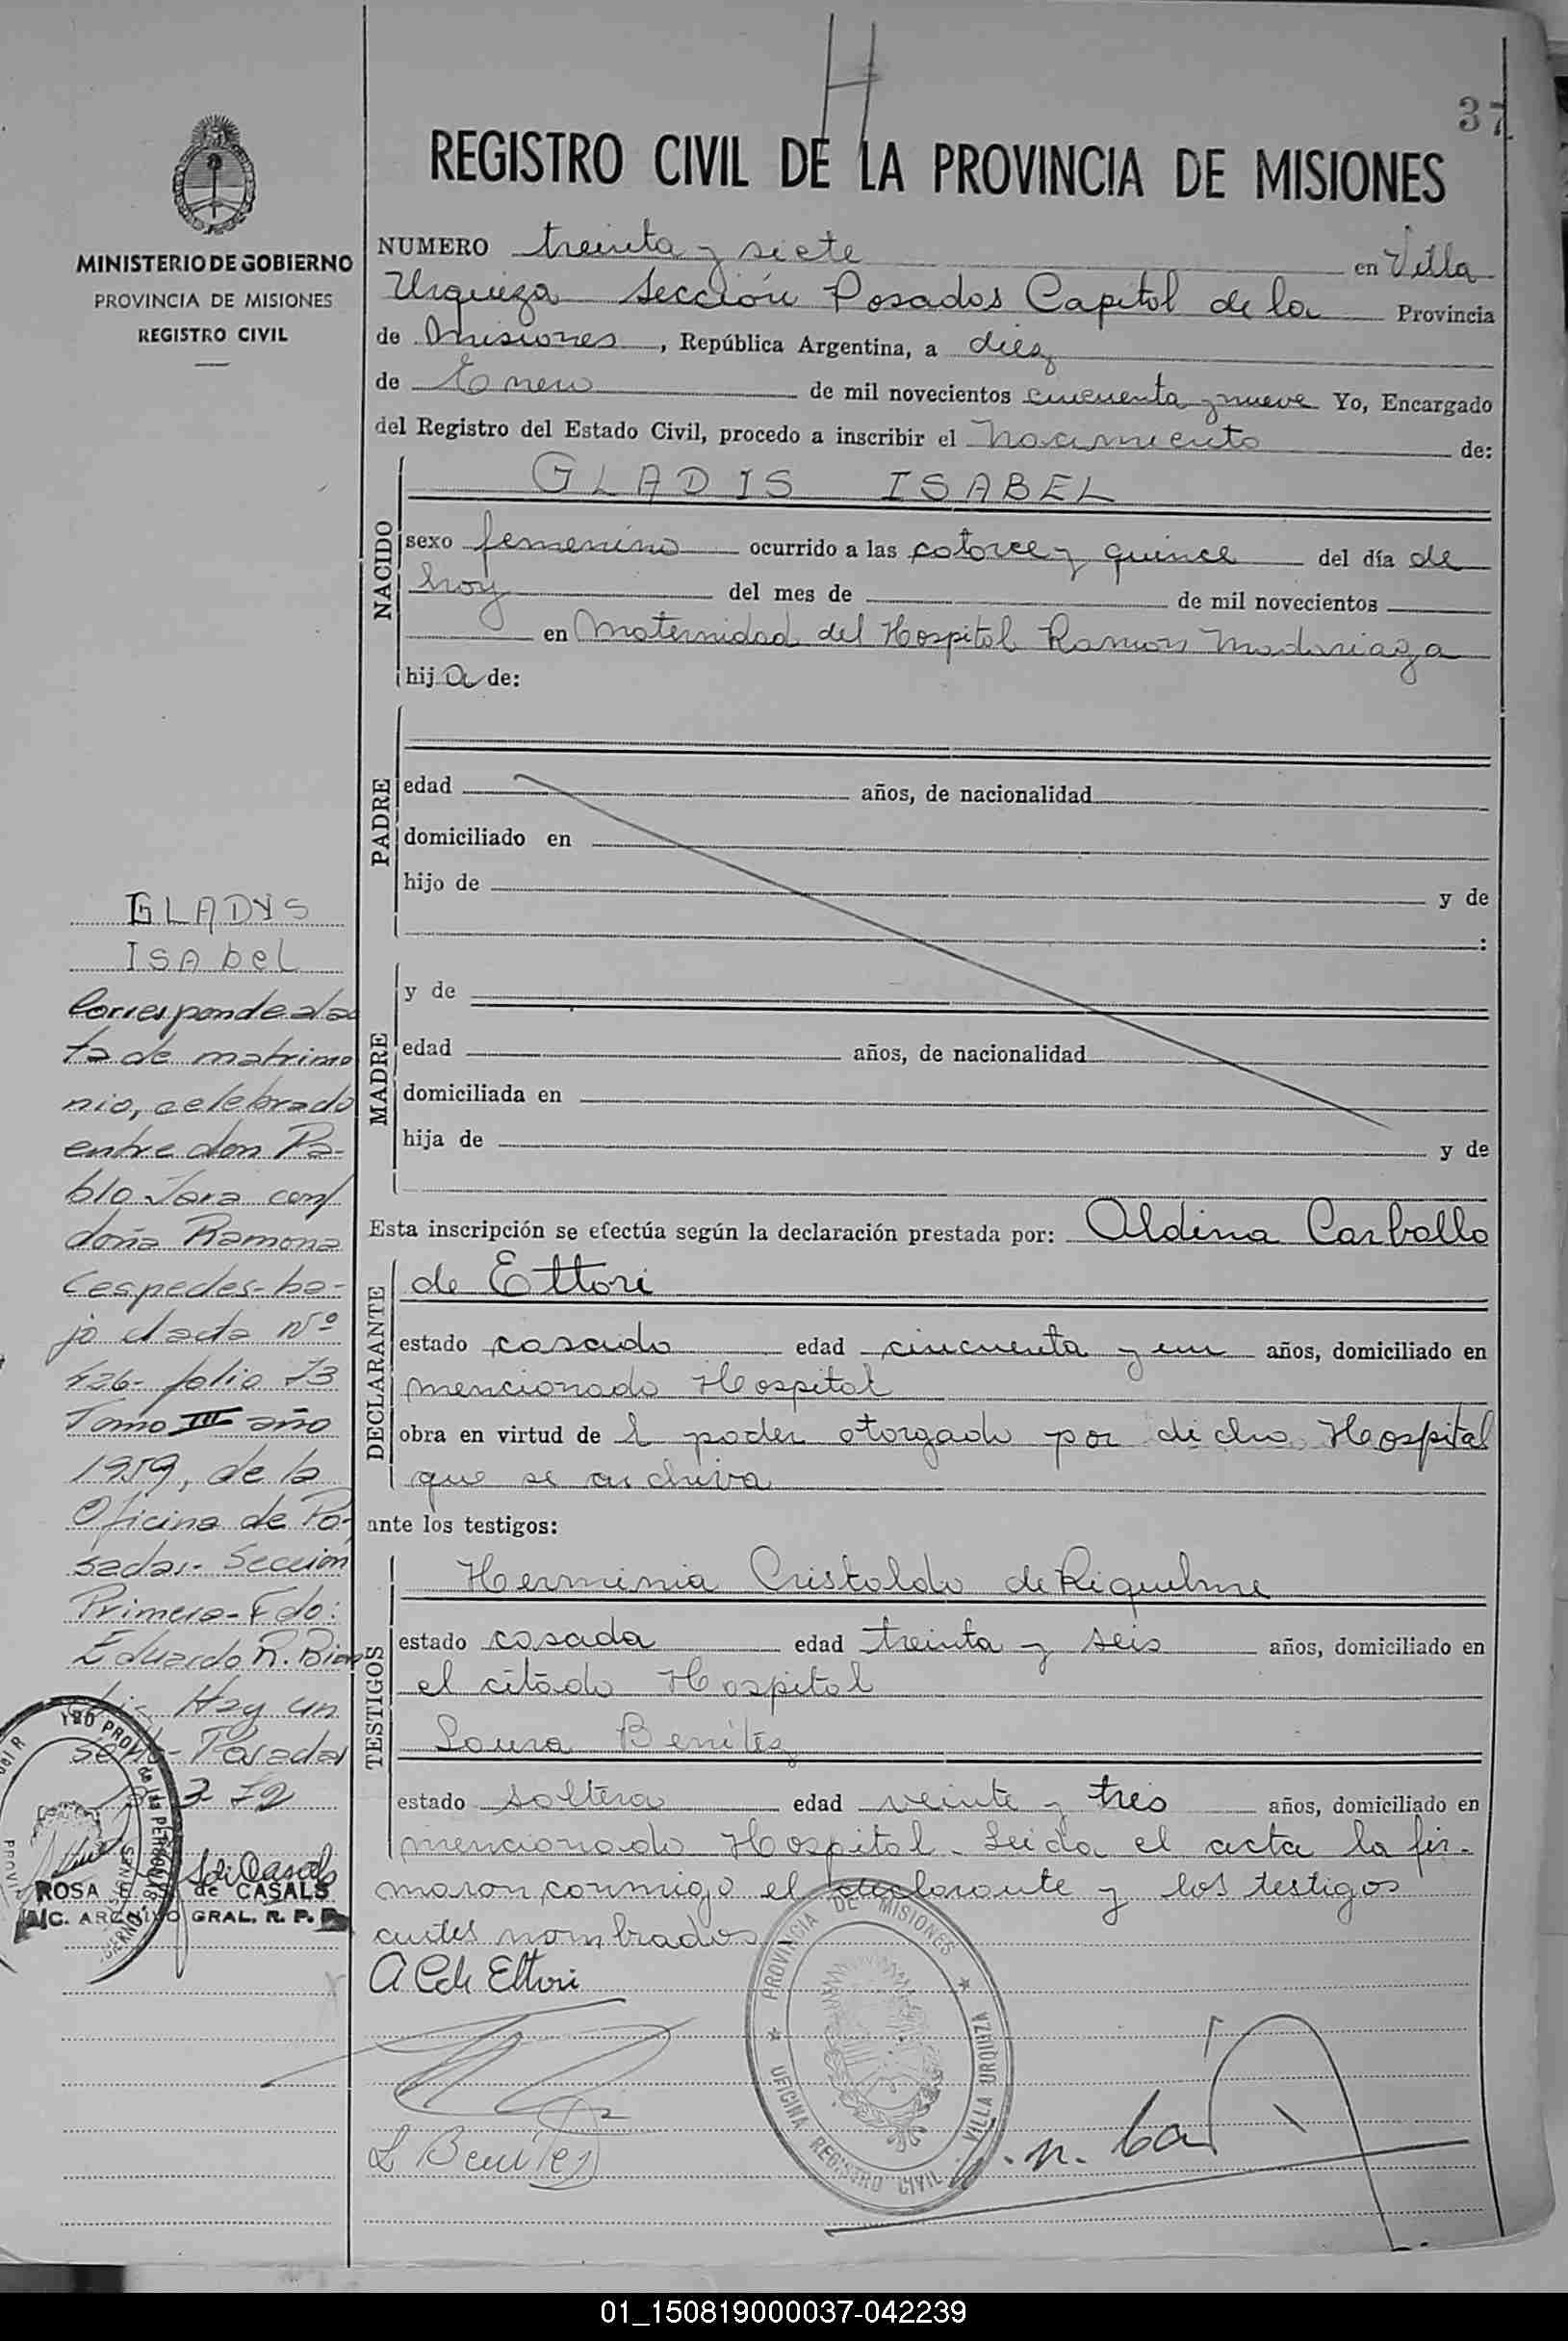 37
H
REGISTRO CIVIL DE LA PROVINCIA DE MISIONES
MINISTERIO DE GOBIERNO
PROVINCIA DE MISIONES
REGISTRO CIVIL
NUMERO treinta y siete en Villa
Urquiza Sección Posadas Capital de la Provincia
de Misiones, República Argentina, a diez
de Enero de mil novecientos cincuenta y nueve Yo, Encargado
del Registro del Estado Civil, procedo a inscribir el nacimiento de:
NACIDO
GLADIS ISABEL
sexo femenino ocurrido a las catorce y quince del día de
hoy del mes de de mil novecientos
en Maternidad del Hospital Ramon Madariaga
hija de:
PADRE
edad años, de nacionalidad
domiciliado en
hijo de y de
:
MADRE
y de
edad años, de nacionalidad
domiciliada en
hija de y de
Esta inscripción se efectúa según la declaración prestada por: Aldina Carballo
DECLARANTE
de Ettori
estado casado edad cincuenta y un años, domiciliado en
mencionado Hospital
obra en virtud de l poder otorgado por dicho Hospital
que se archiva
ante los testigos:
TESTIGOS
Herminia Cristaldo de Riquelme
estado casada edad treinta y seis años, domiciliado en
el citado Hospital
Laura Benítez
estado soltera edad veinte y tres años, domiciliado en
mencionado Hospital. Leida el acta la fir-
maron conmigo el declarante y los testigos
antes nombrados
A C de Ettori
L Benítez
PROVINCIA DE MISIONES
OFICINA REGISTRO CIVIL
VILLA URQUIZA
GLADYS
ISAbeL
Corresponde al ac
ta de matrimo
nio, celebrado
entre don Pa-
blo Jara con
doña Ramona
Cespedes- ba-
jo el acta Nº
426- folio 73
Tomo III año
1959, de la
Oficina de Po-
sadas- Sección
Primera- Fdo:
Eduardo R.
Hay un
sello- Posadas
ROSA de CASALS
ARCHIVO GRAL. R. P.
01_150819000037-042239